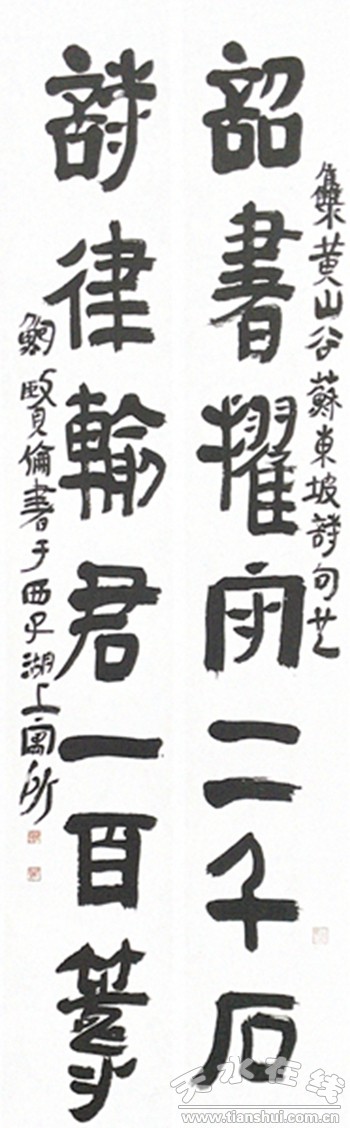 集黃山谷蘇東坡詩句也
詔書擢守二千石
詩律輸君一百籌
鮑賢倫書于西子湖上寓所
天水在线
www.tianshui.com.cn